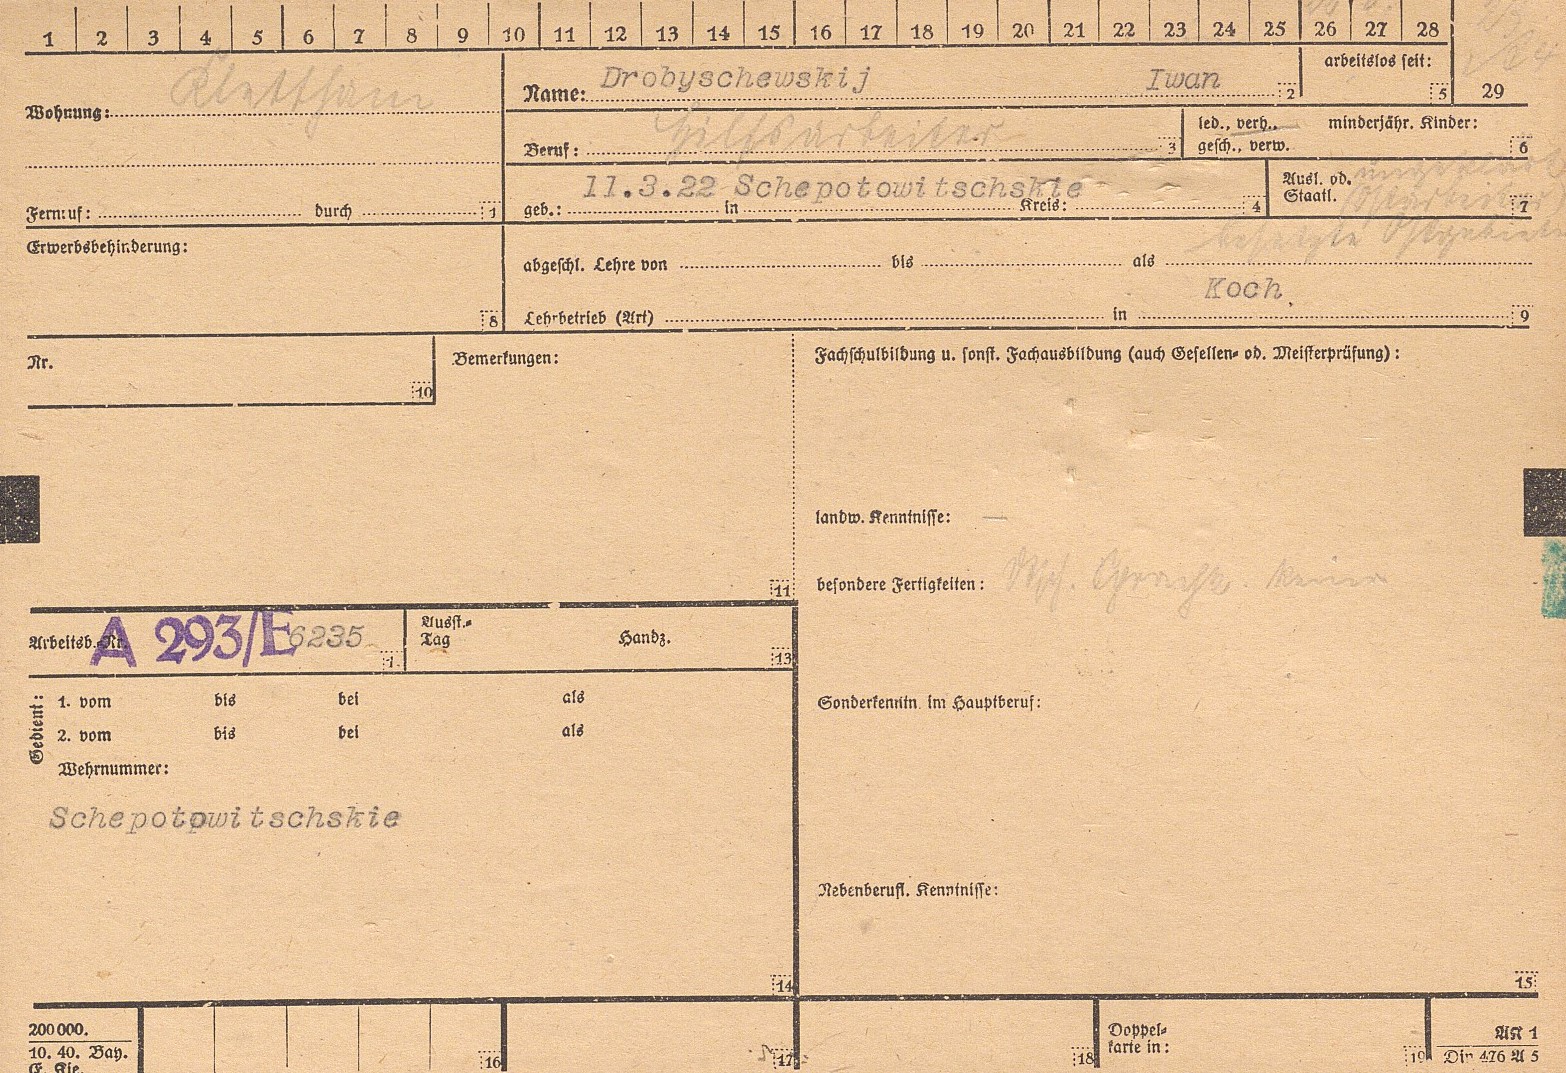 1 2 3 4 5 6 7 8 9 10 11 12 13 14 15 16 17 18 19 20 21 22 23 24 25 26 27 28
arbeitslos seit:
5
29
Wohnung: Klettham
Name: Drobyschewskij Iwan 2
Beruf: Hilfsarbeiter 3
led., verh.,
gesch., verw.
minderjähr. Kinder:
6
Fernruf: durch 1
11.3.22 Schepotowitschskie
geb.: in Kreis: 4
Ausl. od.
Staatl.
Ostarbeiter
7
besetzte Ostgebiete
Erwerbsbehinderung:
8
abgeschl. Lehre von bis als
Koch
Lehrbetrieb (Art) in 9
Nr.
10
Bemerkungen:
11
Fachschulbildung u. sonst. Fachausbildung (auch Gesellen- od. Meisterprüfung):
landw. Kenntnisse: —
besondere Fertigkeiten: Sprachk. keine
Arbeitsb.-Nr. A 293/E 6235
1
Ausst.-
Tag
Handz.
13
Gedient:
1. vom bis bei als
2. vom bis bei als
Wehrnummer:
Schepotowitschskie
14
Sonderkenntn. im Hauptberuf:
Nebenberufl. Kenntnisse:
15
200000.
10. 40. Bay.
16
17
18
Doppel-
karte in:
19
AK 1
Din 476 A 5